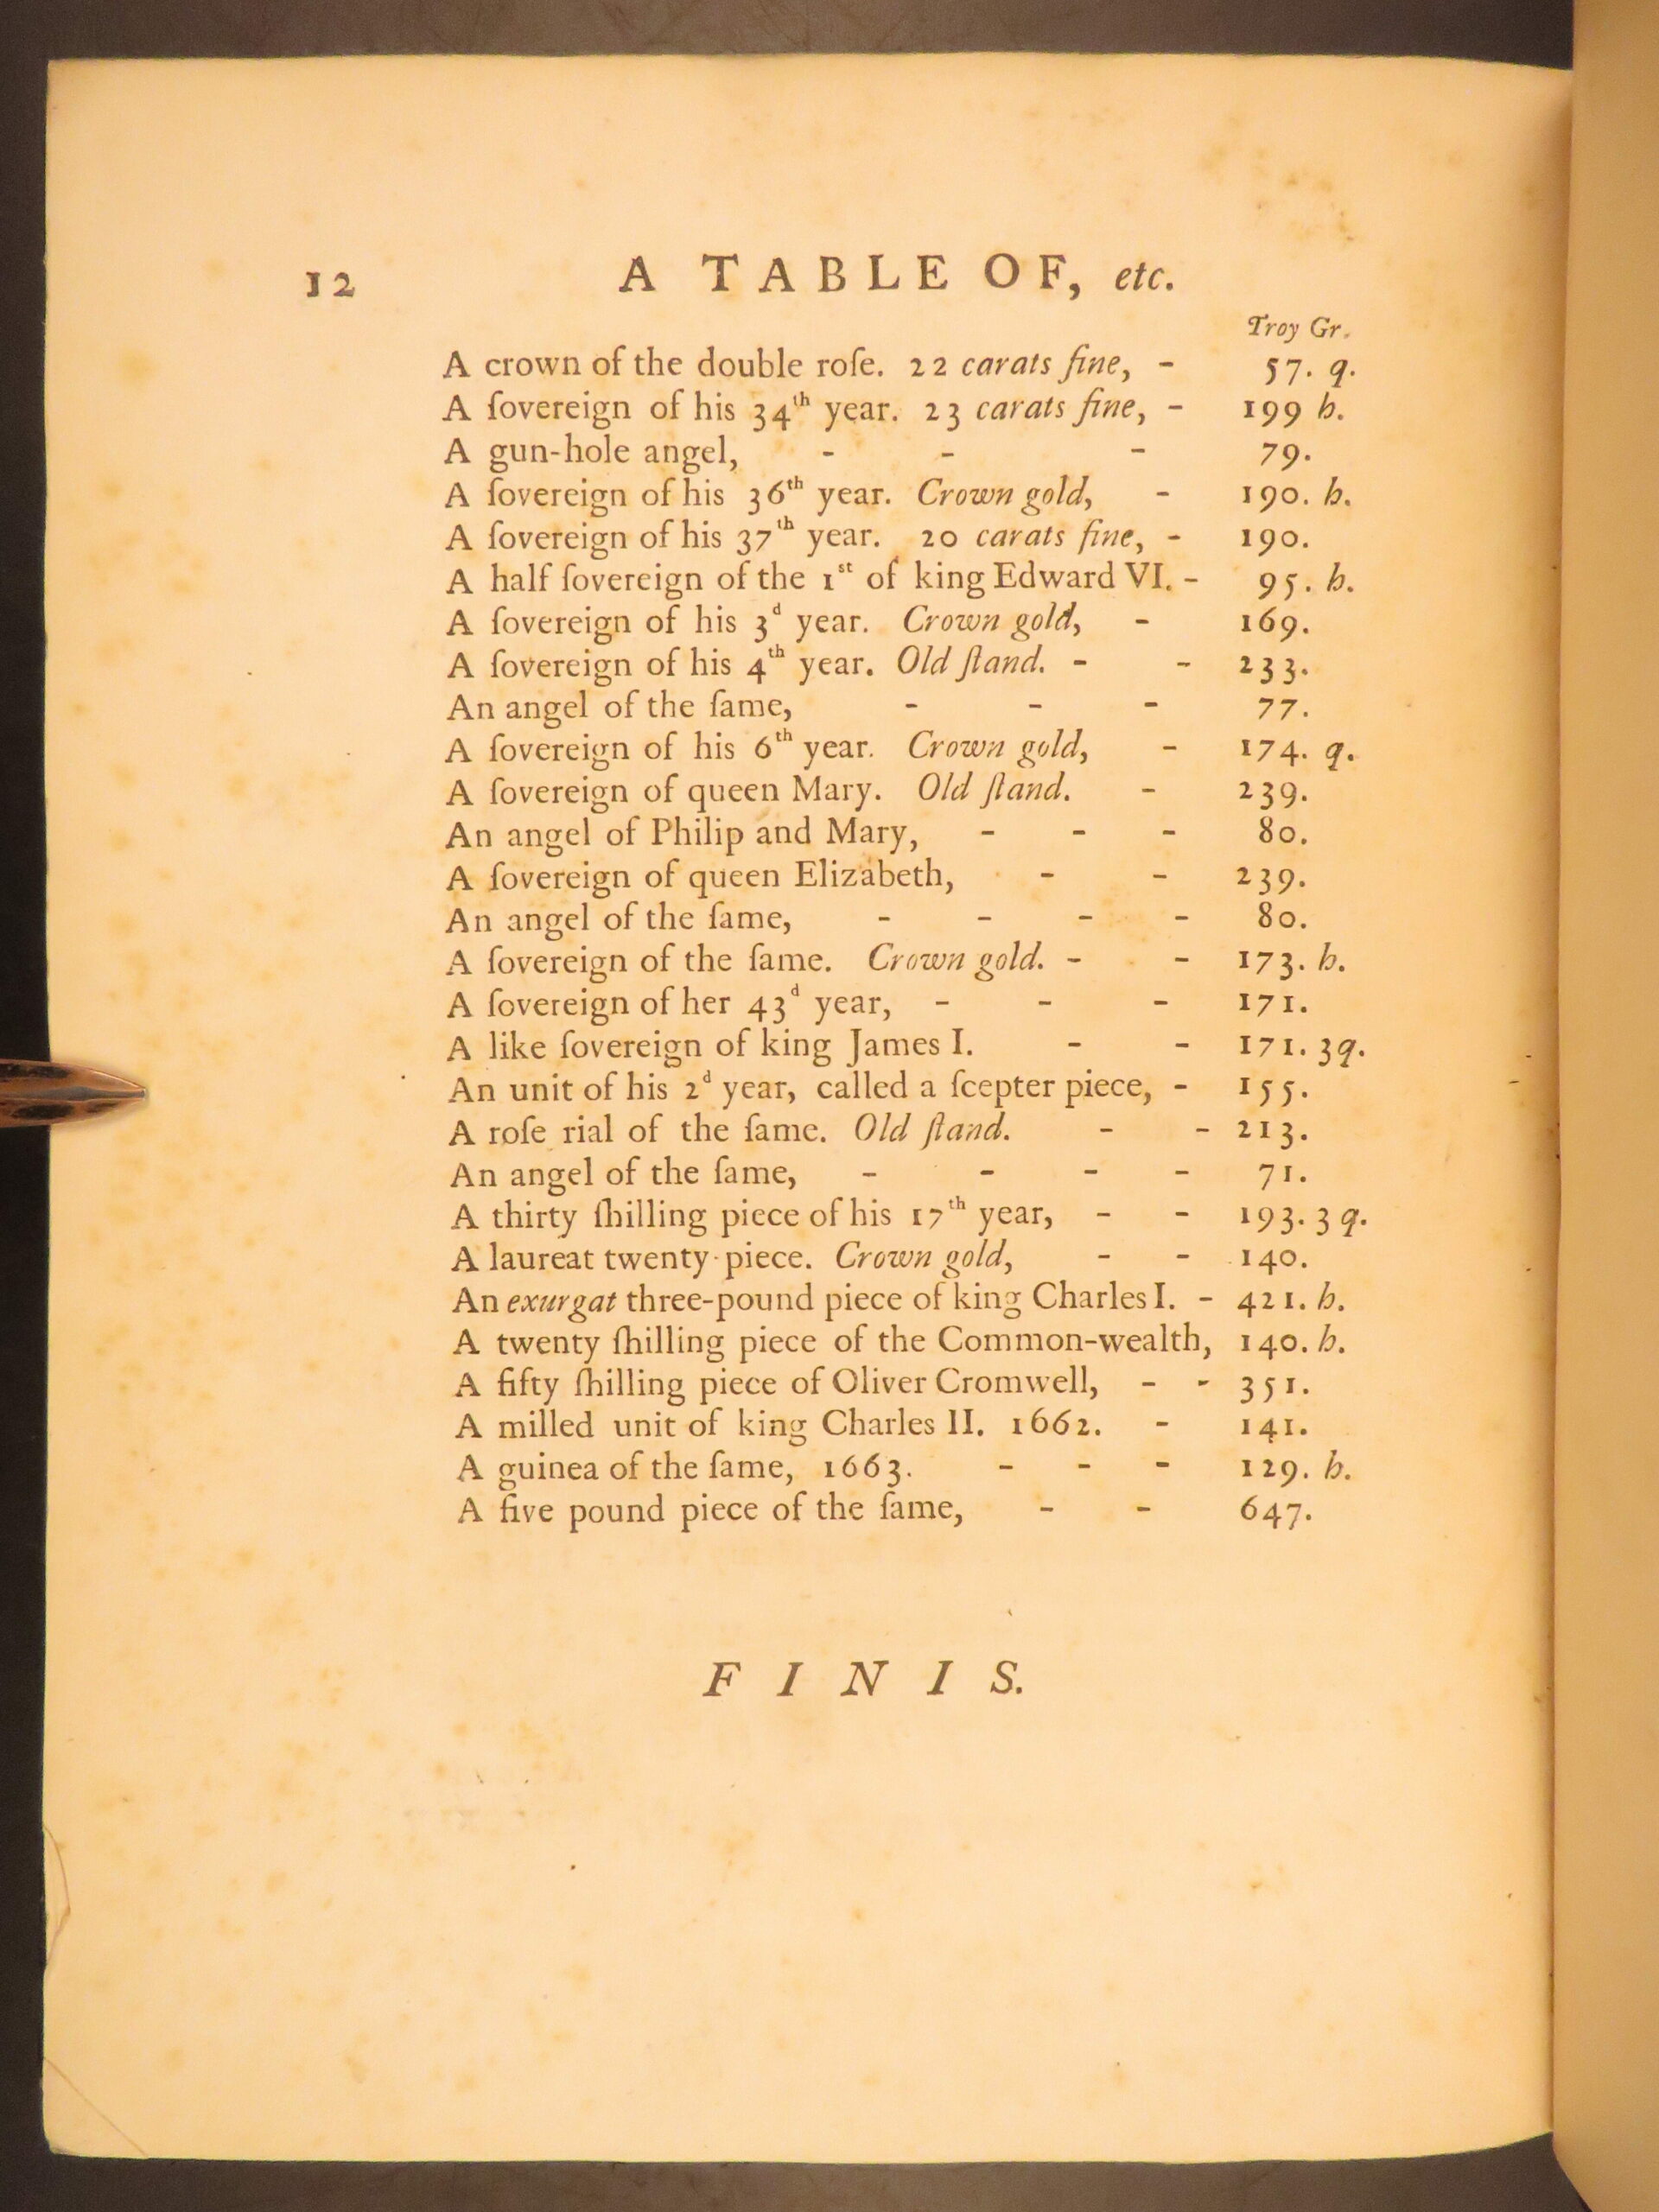 12 A TABLE OF, etc.
Troy Gr.
A crown of the double roſe. 22 carats fine, - 57. q.
A ſovereign of his 34th year. 23 carats fine, - 199 h.
A gun-hole angel, - - - 79.
A ſovereign of his 36th year. Crown gold, - 190. h.
A ſovereign of his 37th year. 20 carats fine, - 190.
A half ſovereign of the 1st of king Edward VI. - 95. h.
A ſovereign of his 3d year. Crown gold, - 169.
A ſovereign of his 4th year. Old ſtand. - - 233.
An angel of the ſame, - - - 77.
A ſovereign of his 6th year. Crown gold, - 174. q.
A ſovereign of queen Mary. Old ſtand. - 239.
An angel of Philip and Mary, - - - 80.
A ſovereign of queen Elizabeth, - - 239.
An angel of the ſame, - - - - 80.
A ſovereign of the ſame. Crown gold. - - 173. h.
A ſovereign of her 43d year, - - - 171.
A like ſovereign of king James I. - - 171. 3q.
An unit of his 2d year, called a ſcepter piece, - 155.
A roſe rial of the ſame. Old ſtand. - - 213.
An angel of the ſame, - - - - 71.
A thirty ſhilling piece of his 17th year, - - 193. 3 q.
A laureat twenty-piece. Crown gold, - - 140.
An exurgat three-pound piece of king Charles I. - 421. h.
A twenty ſhilling piece of the Common-wealth, 140. h.
A fifty ſhilling piece of Oliver Cromwell, - - 351.
A milled unit of king Charles II. 1662. - 141.
A guinea of the ſame, 1663. - - - 129. h.
A five pound piece of the ſame, - - 647.
FINIS.